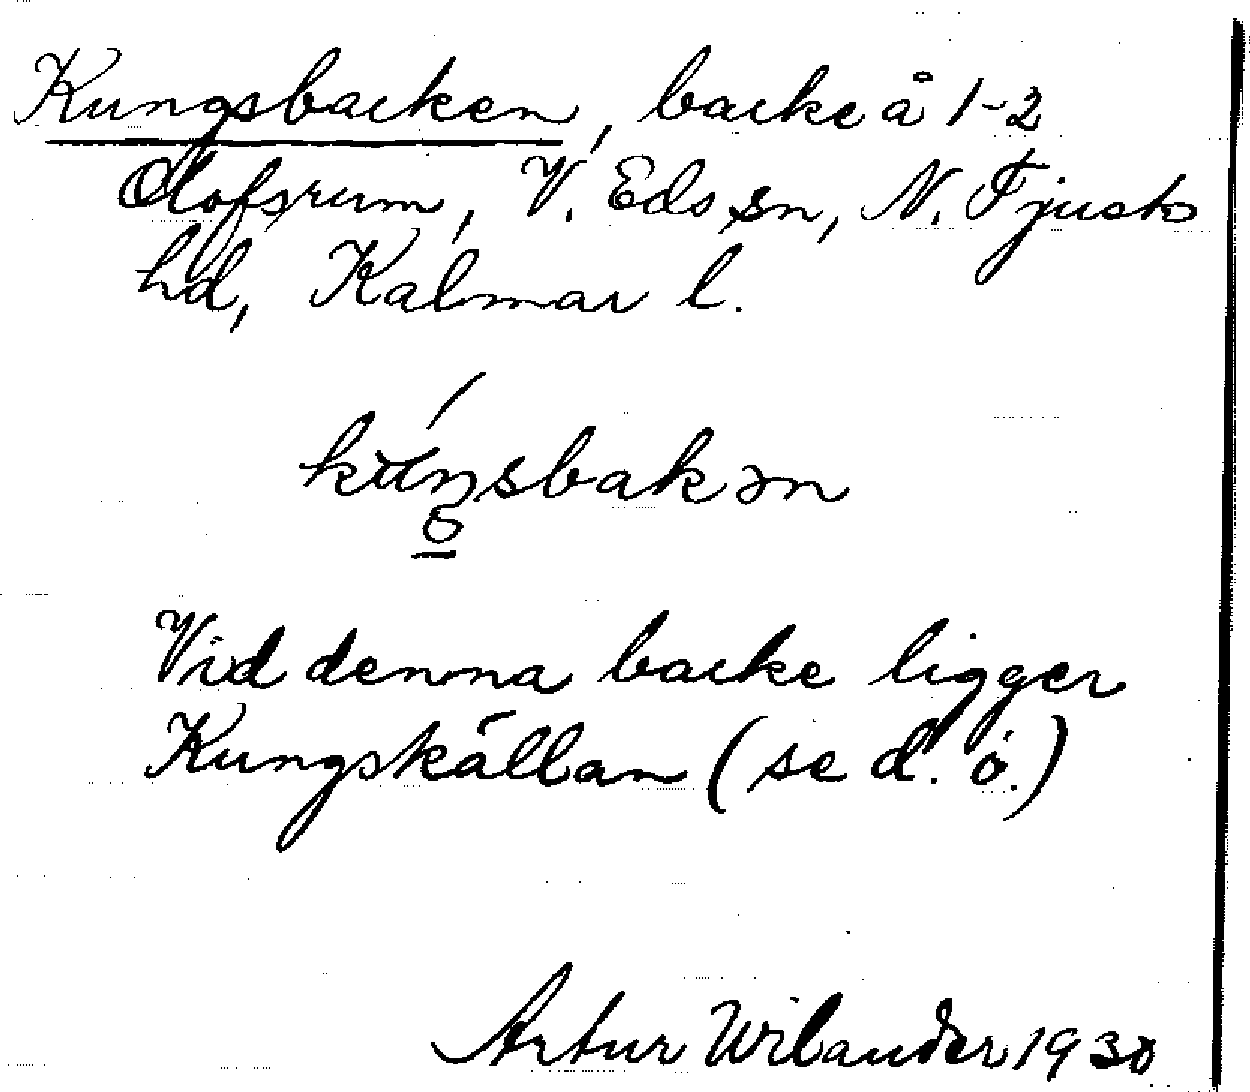 Kungsbacken, backe å 1-2
Olofsrum, V. Eds sn, N. Tjusts
hd, Kalmar l.
kúŋsbakən
Vid denna backe ligger
Kungskällan (se d. o.)
Artur Wilander 1930